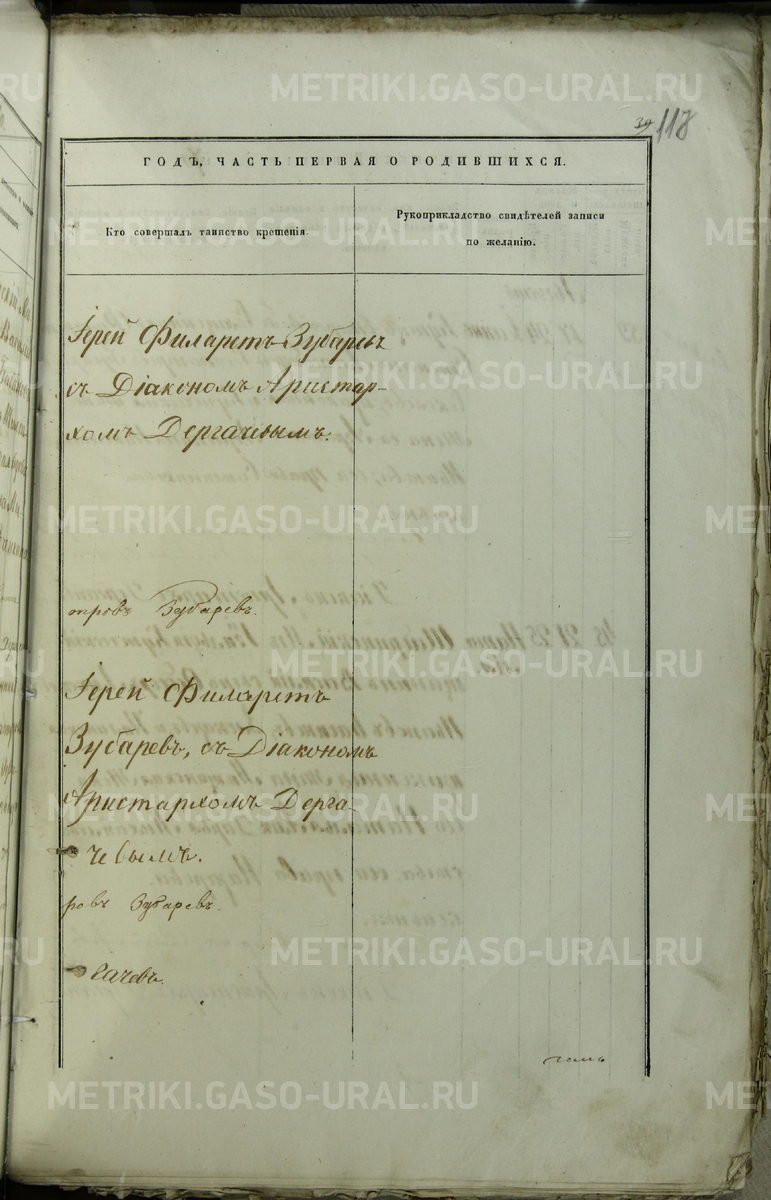 118
ГОДЪ, ЧАСТЬ ПЕРВАЯ О РОДИВШИХСЯ.
Кто совершалъ таинство крещенія.
Рукоприкладство свидѣтелей записи
по желанію.
Іерей Филаретъ Зубаревъ
съ Діакономъ Аристар-
хомъ Дергачевымъ:
тровъ Зубаревъ.
Іерей Филаретъ
Зубаревъ, съ Діакономъ
Аристархомъ Дерга-
чевымъ.
ровъ Зубаревъ.
гачевъ.
METRIKI.GASO-URAL.RU